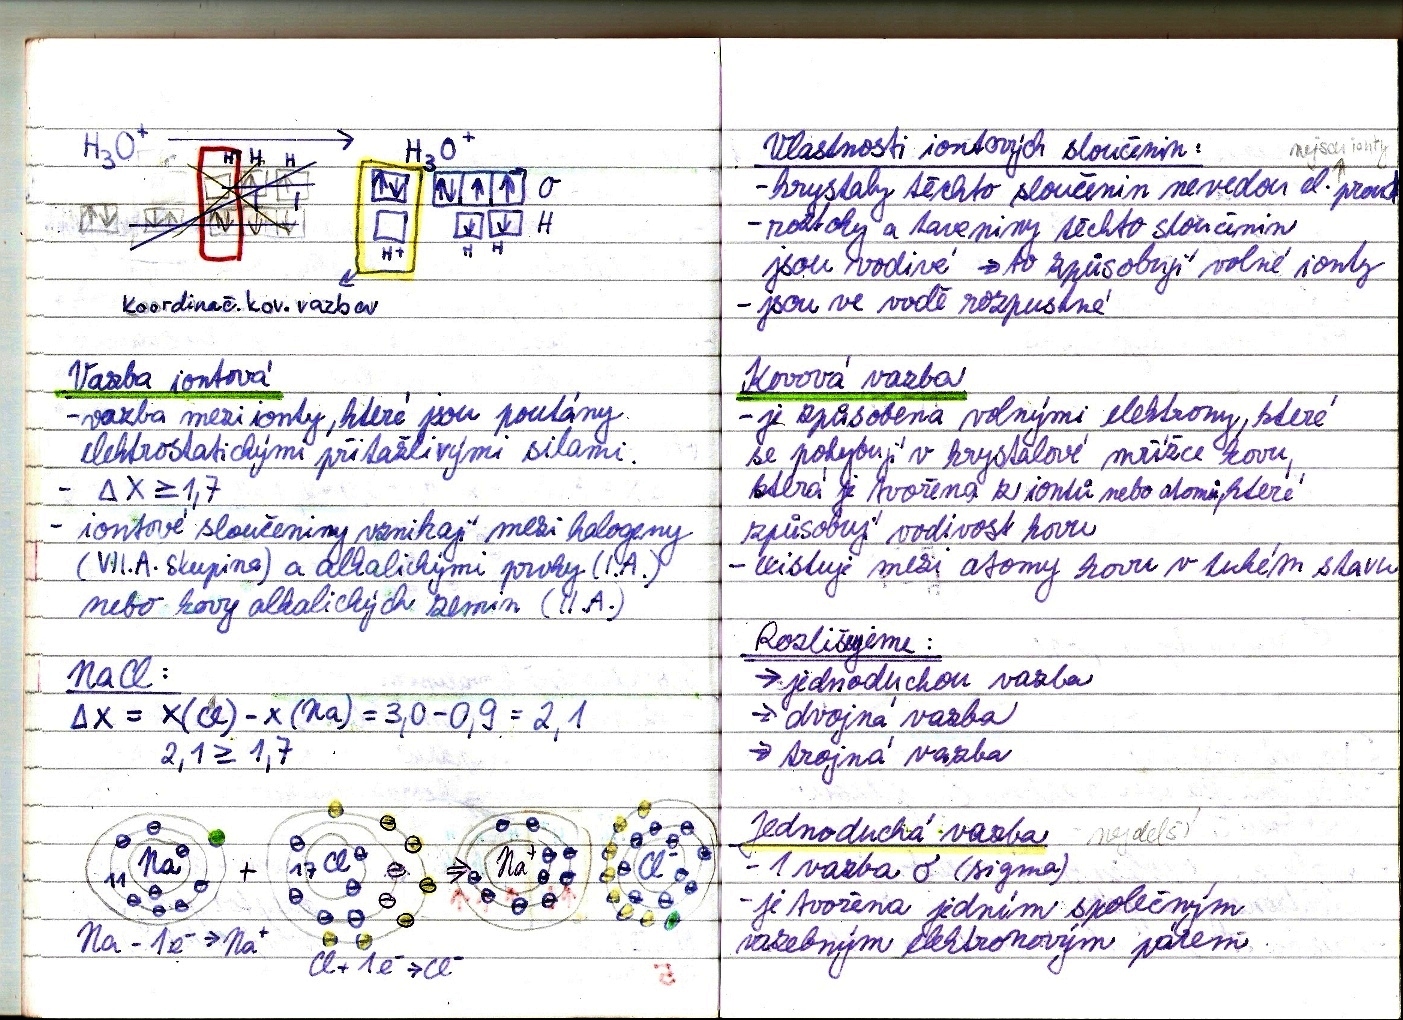 H₃O⁺ → H₃O⁺
H H H
O
H
H+ H H
koordinač. kov. vazbou
Vazba iontová
- vazba mezi ionty, které jsou poutány
elektrostatickými přitažlivými silami.
- ΔX ≥ 1,7
- iontové sloučeniny vznikají mezi halogeny
(VII.A. skupina) a alkalickými prvky (I.A.)
nebo kovy alkalických zemin (II.A.)
NaCl:
ΔX = X(Cl) - X(Na) = 3,0 - 0,9 = 2,1
2,1 ≥ 1,7
Na 11 + 17 Cl ⇒ Na⁺ Cl⁻
Na - 1e⁻ → Na⁺
Cl + 1e⁻ → Cl⁻
Vlastnosti iontových sloučenin:
nejsou ionty
- krystaly těchto sloučenin nevedou el. proud
- roztoky a taveniny těchto sloučenin
jsou vodivé → to způsobují volné ionty
- jsou ve vodě rozpustné
Kovová vazba
- je způsobena volnými elektrony, které
se pohybují v krystalové mřížce kovu,
která je tvořena z iontů nebo atomů, které
způsobují vodivost kovu
- existuje mezi atomy kovu v tuhém stavu
Rozlišujeme:
→ jednoduchou vazba
→ dvojná vazba
→ trojná vazba
Jednoduchá vazba - nejdelší
- 1 vazba σ (sigma)
- je tvořena jedním společným
vazebným elektronovým párem